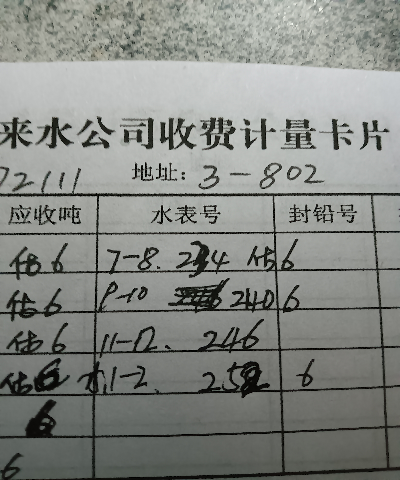 来水公司收费计量卡片
72111 地址: 3-802
应收吨 水表号 封铅号
估6 7-8. 234 估6
估6 9-10 240 6
估6 11-12. 246
估6 1-2. 252 6
6
6